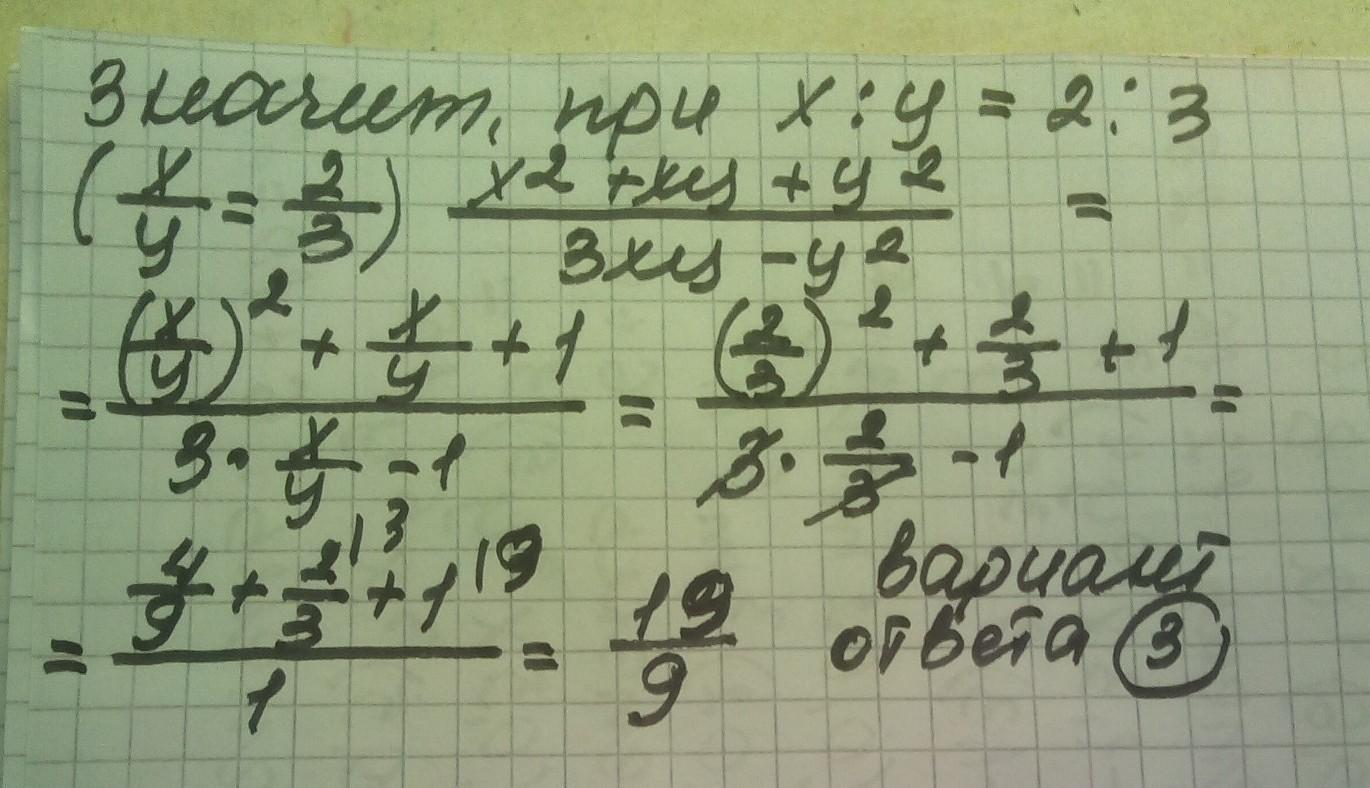 Значит, при x : y = 2 : 3
(x/y = 2/3) (x2 + xy + y2)/(3xy - y2) =
= ((x/y)² + x/y + 1)/(3 · x/y - 1) = ((2/3)² + 2/3 + 1)/(3 · 2/3 - 1) =
= (4/9 + 2/3 |3 + 1 |9)/1 = 19/9 вариант
ответа 3